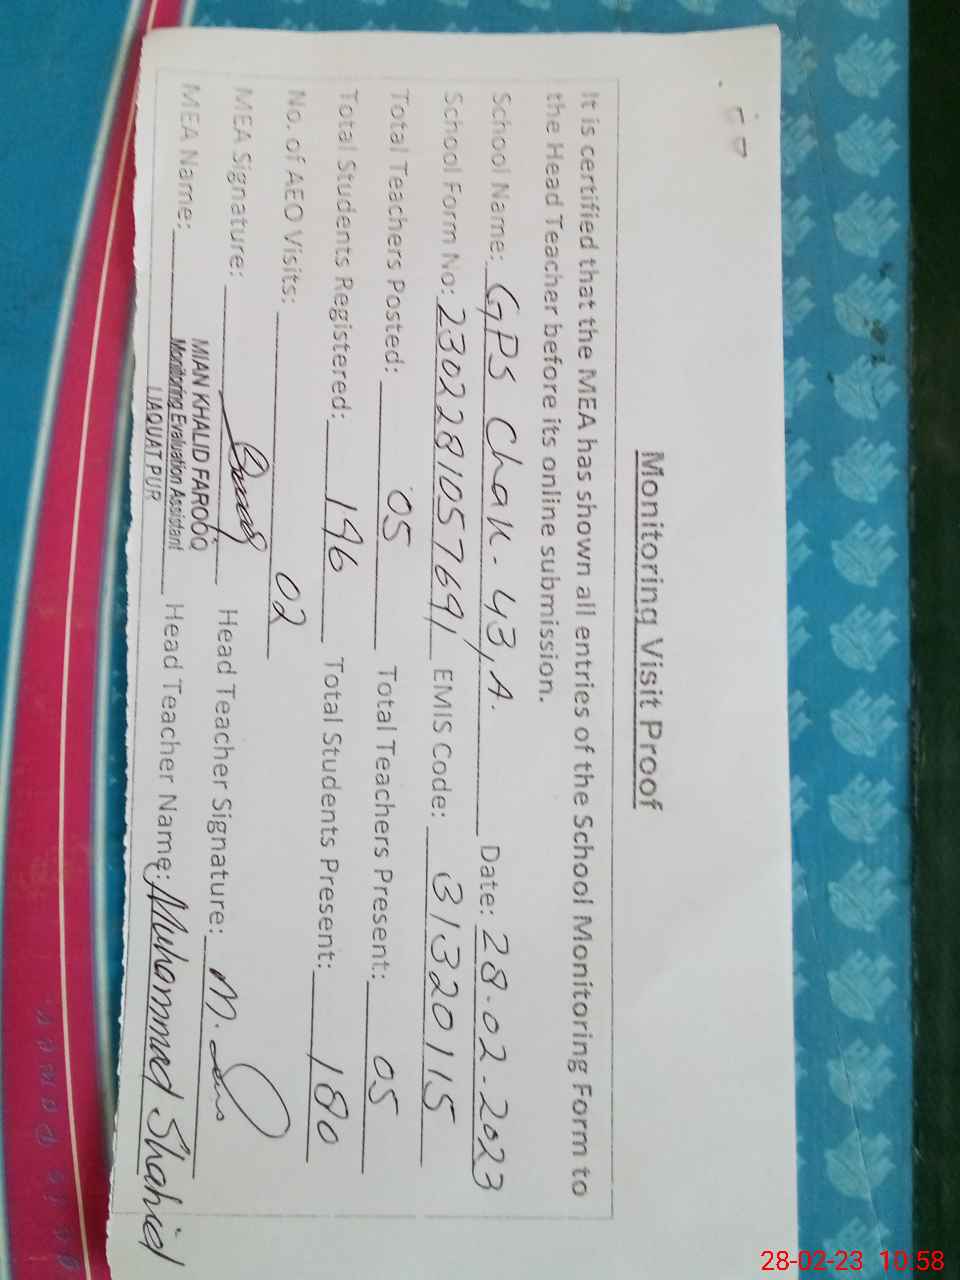 Monitoring Visit Proof
It is certified that the MEA has shown all entries of the School Monitoring Form to
the Head Teacher before its online submission.
School Name: GPS Chak. 43/A. Date: 28.02.2023
School Form No: 2302281057691 EMIS Code: 31320115
Total Teachers Posted: 05 Total Teachers Present: 05
Total Students Registered: 196 Total Students Present: 180
No. of AEO Visits: 02
MEA Signature: Head Teacher Signature: M.
MEA Name: MIAN KHALID FAROOQ Head Teacher Name: Muhammad Shahid
Monitoring Evaluation Assistant
LIAQUAT PUR
28-02-23 10:58